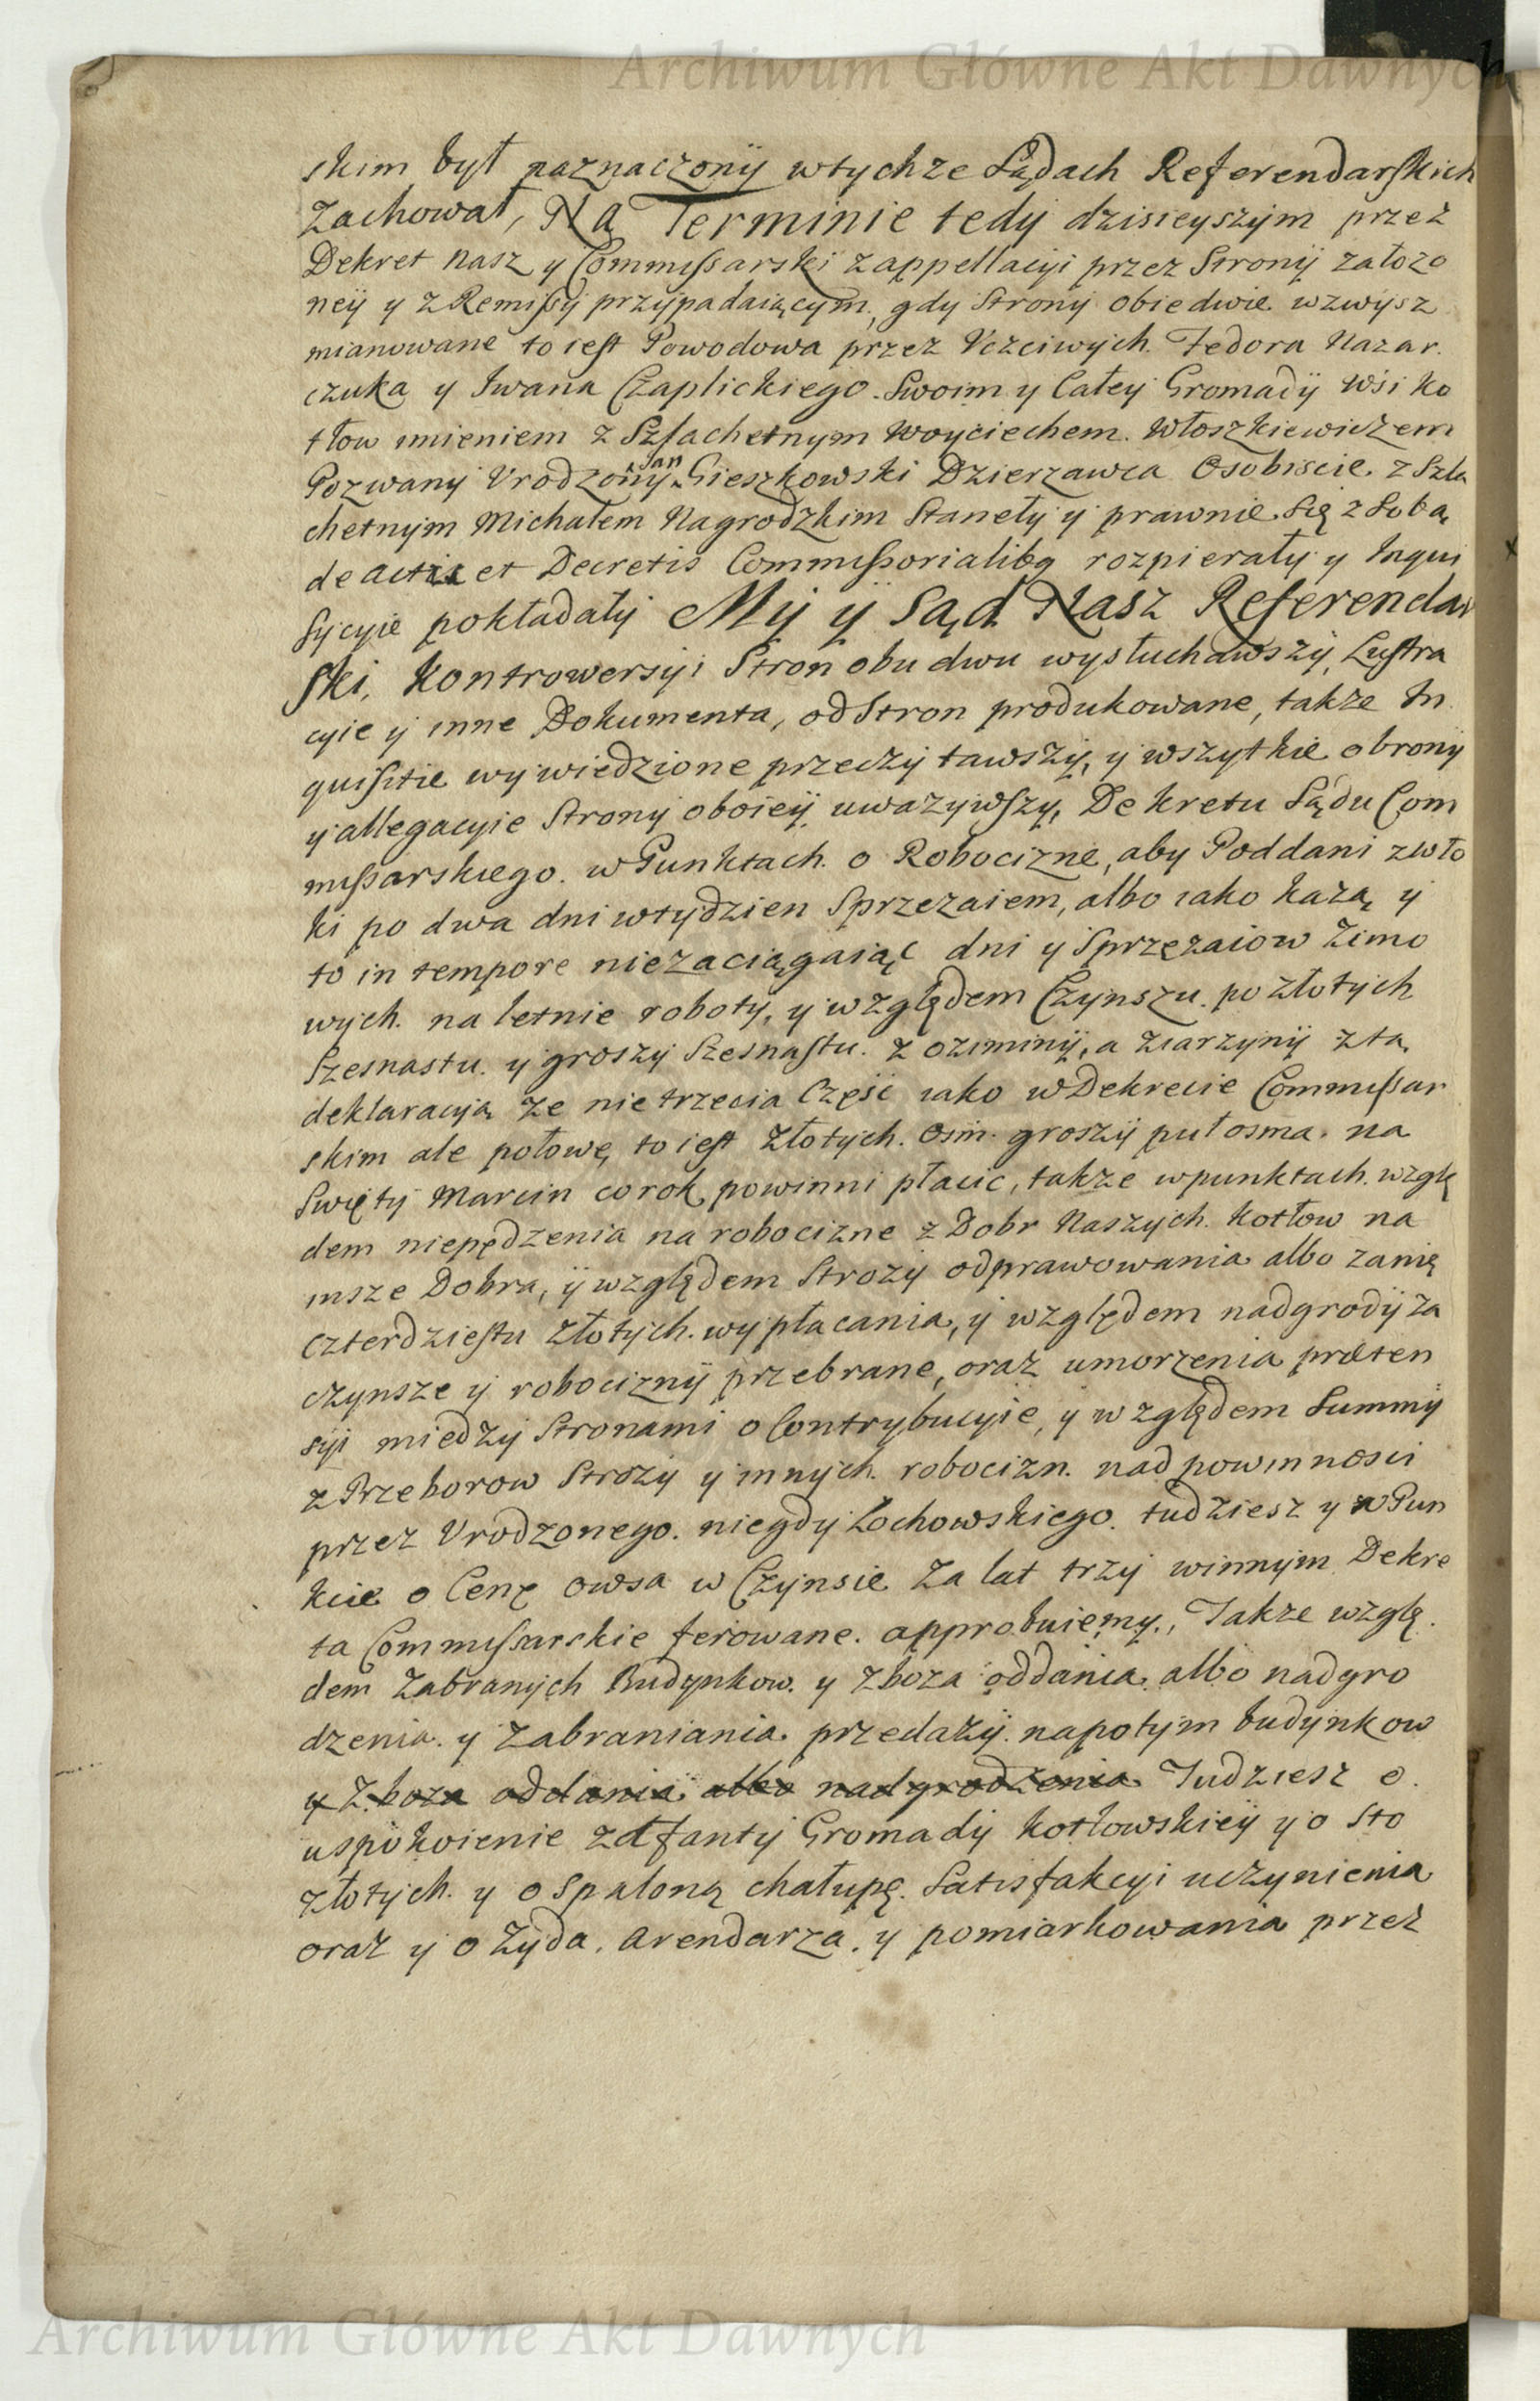 Archiwum Główne Akt Dawnych
skim był naznaczonÿ wtychze Sądach Referendarskich
Zachował, Na Terminie tedy dzisieyszym przez
Dekret nasz y Commissarski z appellacyi przez Stronÿ założo
neÿ y z Remissÿ przypadaiącym, gdy Strony obiedwie wzwysz
mianowane to iest Powodowa przez Uczciwych. Fedora Nazar.
czuka y Iwana Czaplickiego. Swoim y Całey Gromadÿ wsi Ko
tłow imieniem z Szlachetnym Woyciechem. Włoszkiewiczem
Pozwany Urodzony Jan Gieszkowski Dzierzawca Osobiscie. z Szla
chetnym Michałem Nagrodzkim Stanęły y prawnie Się z Sobą
de actis et Decretis Commissorialibq rozpierały y Inqui
sycyie pokładały My ÿ Sąd Nasz Referendar
ski, Kontrowersyi Stron obu dwu wysłuchawszÿ, Lustra
cyie y inne Dokumenta, od Stron produkowane, także In
quisitie wywiedzione przeczytawszÿ, y wszytkie obrony
y allegacyie Strony oboieÿ uważywszy, Dekretu Sądu Com
missarskiego. w Punktach. o Robociznę, aby Poddani z wło
ki po dwa dni wtydzien Sprzezaiem, albo iako każą y
to in tempore niezaciągaiąc dni y Sprzężaiow Zimo
wych. na letnie roboty, y względem Czynszu. po złotych
Szesnastu. y groszy Szesnastu. z oziminÿ, a z iarzynÿ z tą
deklaracyią że nie trzecia Część iako w Dekrecie Commissar
skim ale połowę, to iest złotych. Osm. groszÿ puł osma. na
Swięty Marcin co rok powinni płacic, także wpunktach. wzglę
dem niepędzenia na robociznę z Dobr Naszych. Kotłow na
insze Dobra, ÿ względem Strozy odprawowania albo za nię
czterdziestu złotych. wypłacania, y względem nadgrodÿ za
czynsze y robociznÿ przebrane, oraz umorzenia præten
syi między Stronami o Contrybucyie, y względem Summÿ
z Przeborow Strozy y innych. robocizn. nad powinnosci
przez Urodzonego. niegdy Łochowskiego. tudziesz y w Pun
kcie o Cenę owsa w Czynsie za lat trzy winnym Dekre
ta Commissarskie ferowane. approbuiemy., Takze wzglę.
dem Zabranych Budynkow. y Zboza oddania albo nadgro
dzenia. y Zabraniania. przedaży. napotym budynkow
y Zboza oddania albo nadgrodzenia Tudziesz o.
uspokoienie za fanty Gromady Kotłowskieÿ y o Sto
złotych. y o Spaloną chałupę. Satisfakcyi uczynienia
oraz y o Zyda. arendarza. y pomiarkowania przez
Archiwum Główne Akt Dawnych